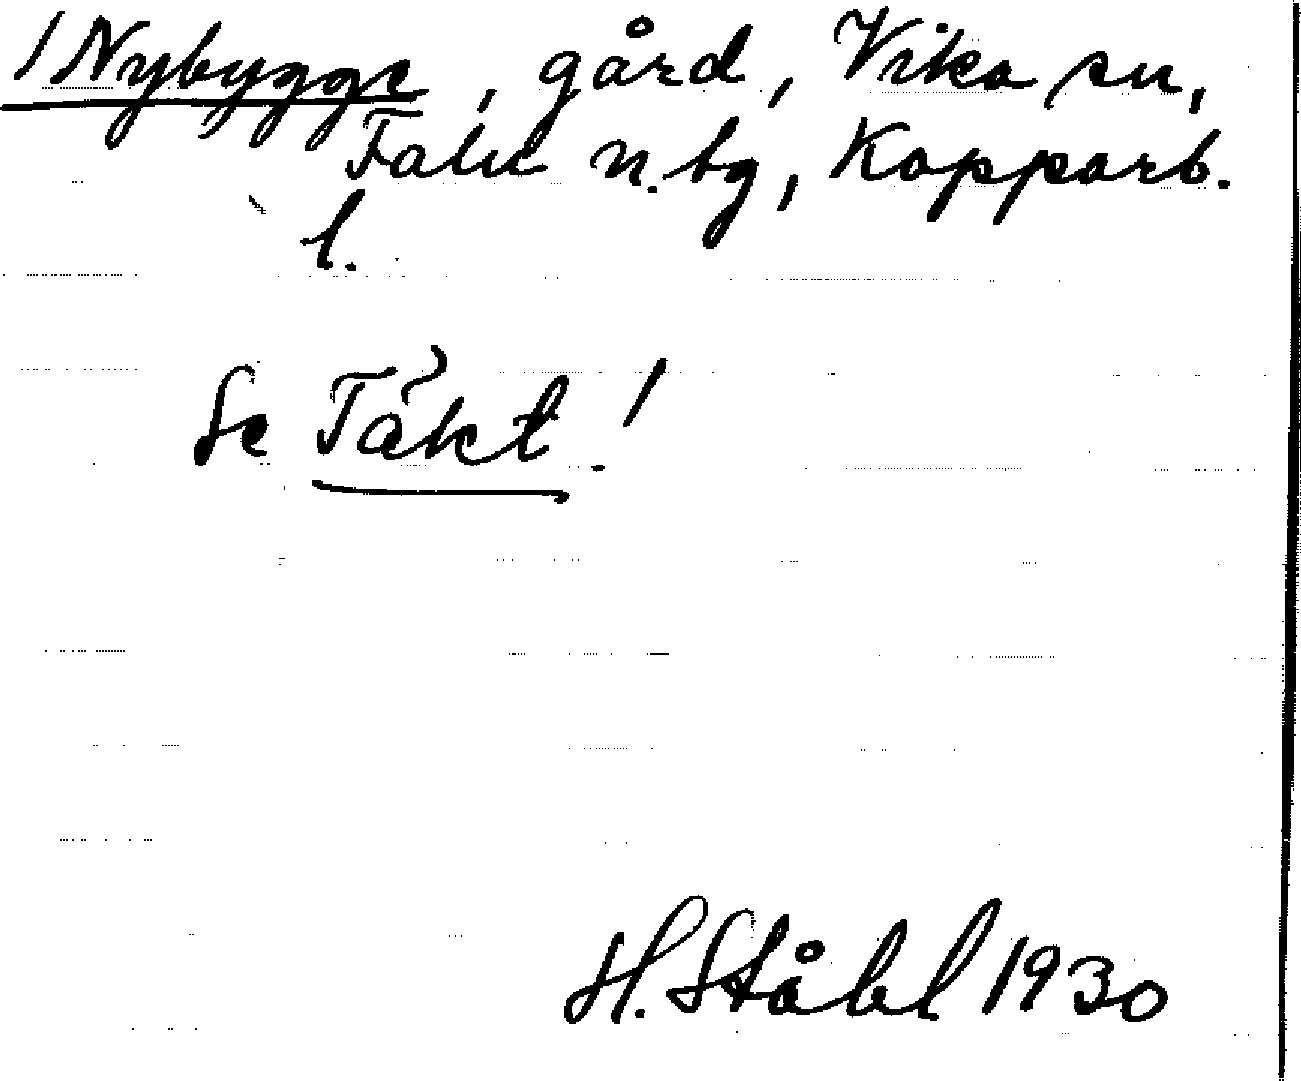 /Nybygge, gård, Vika sn,
Falu n. bg, Kopparb.
l.
Se Täkt!
H. Ståhl 1930